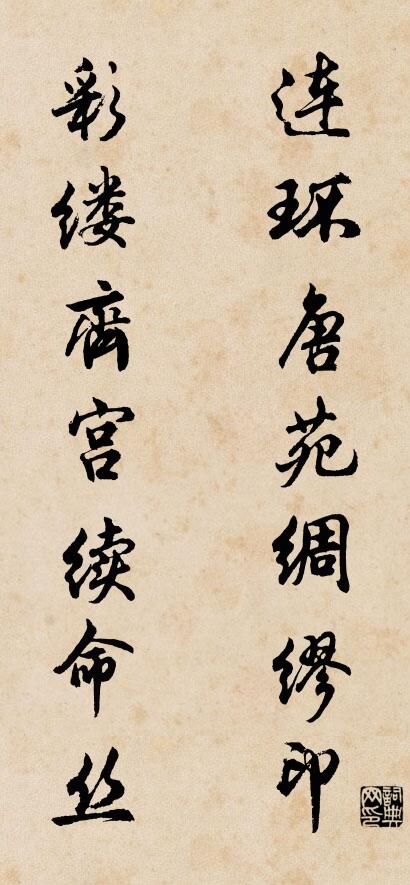 连环唐苑绸缪印
彩缕齊宫续命丝
詞典网印